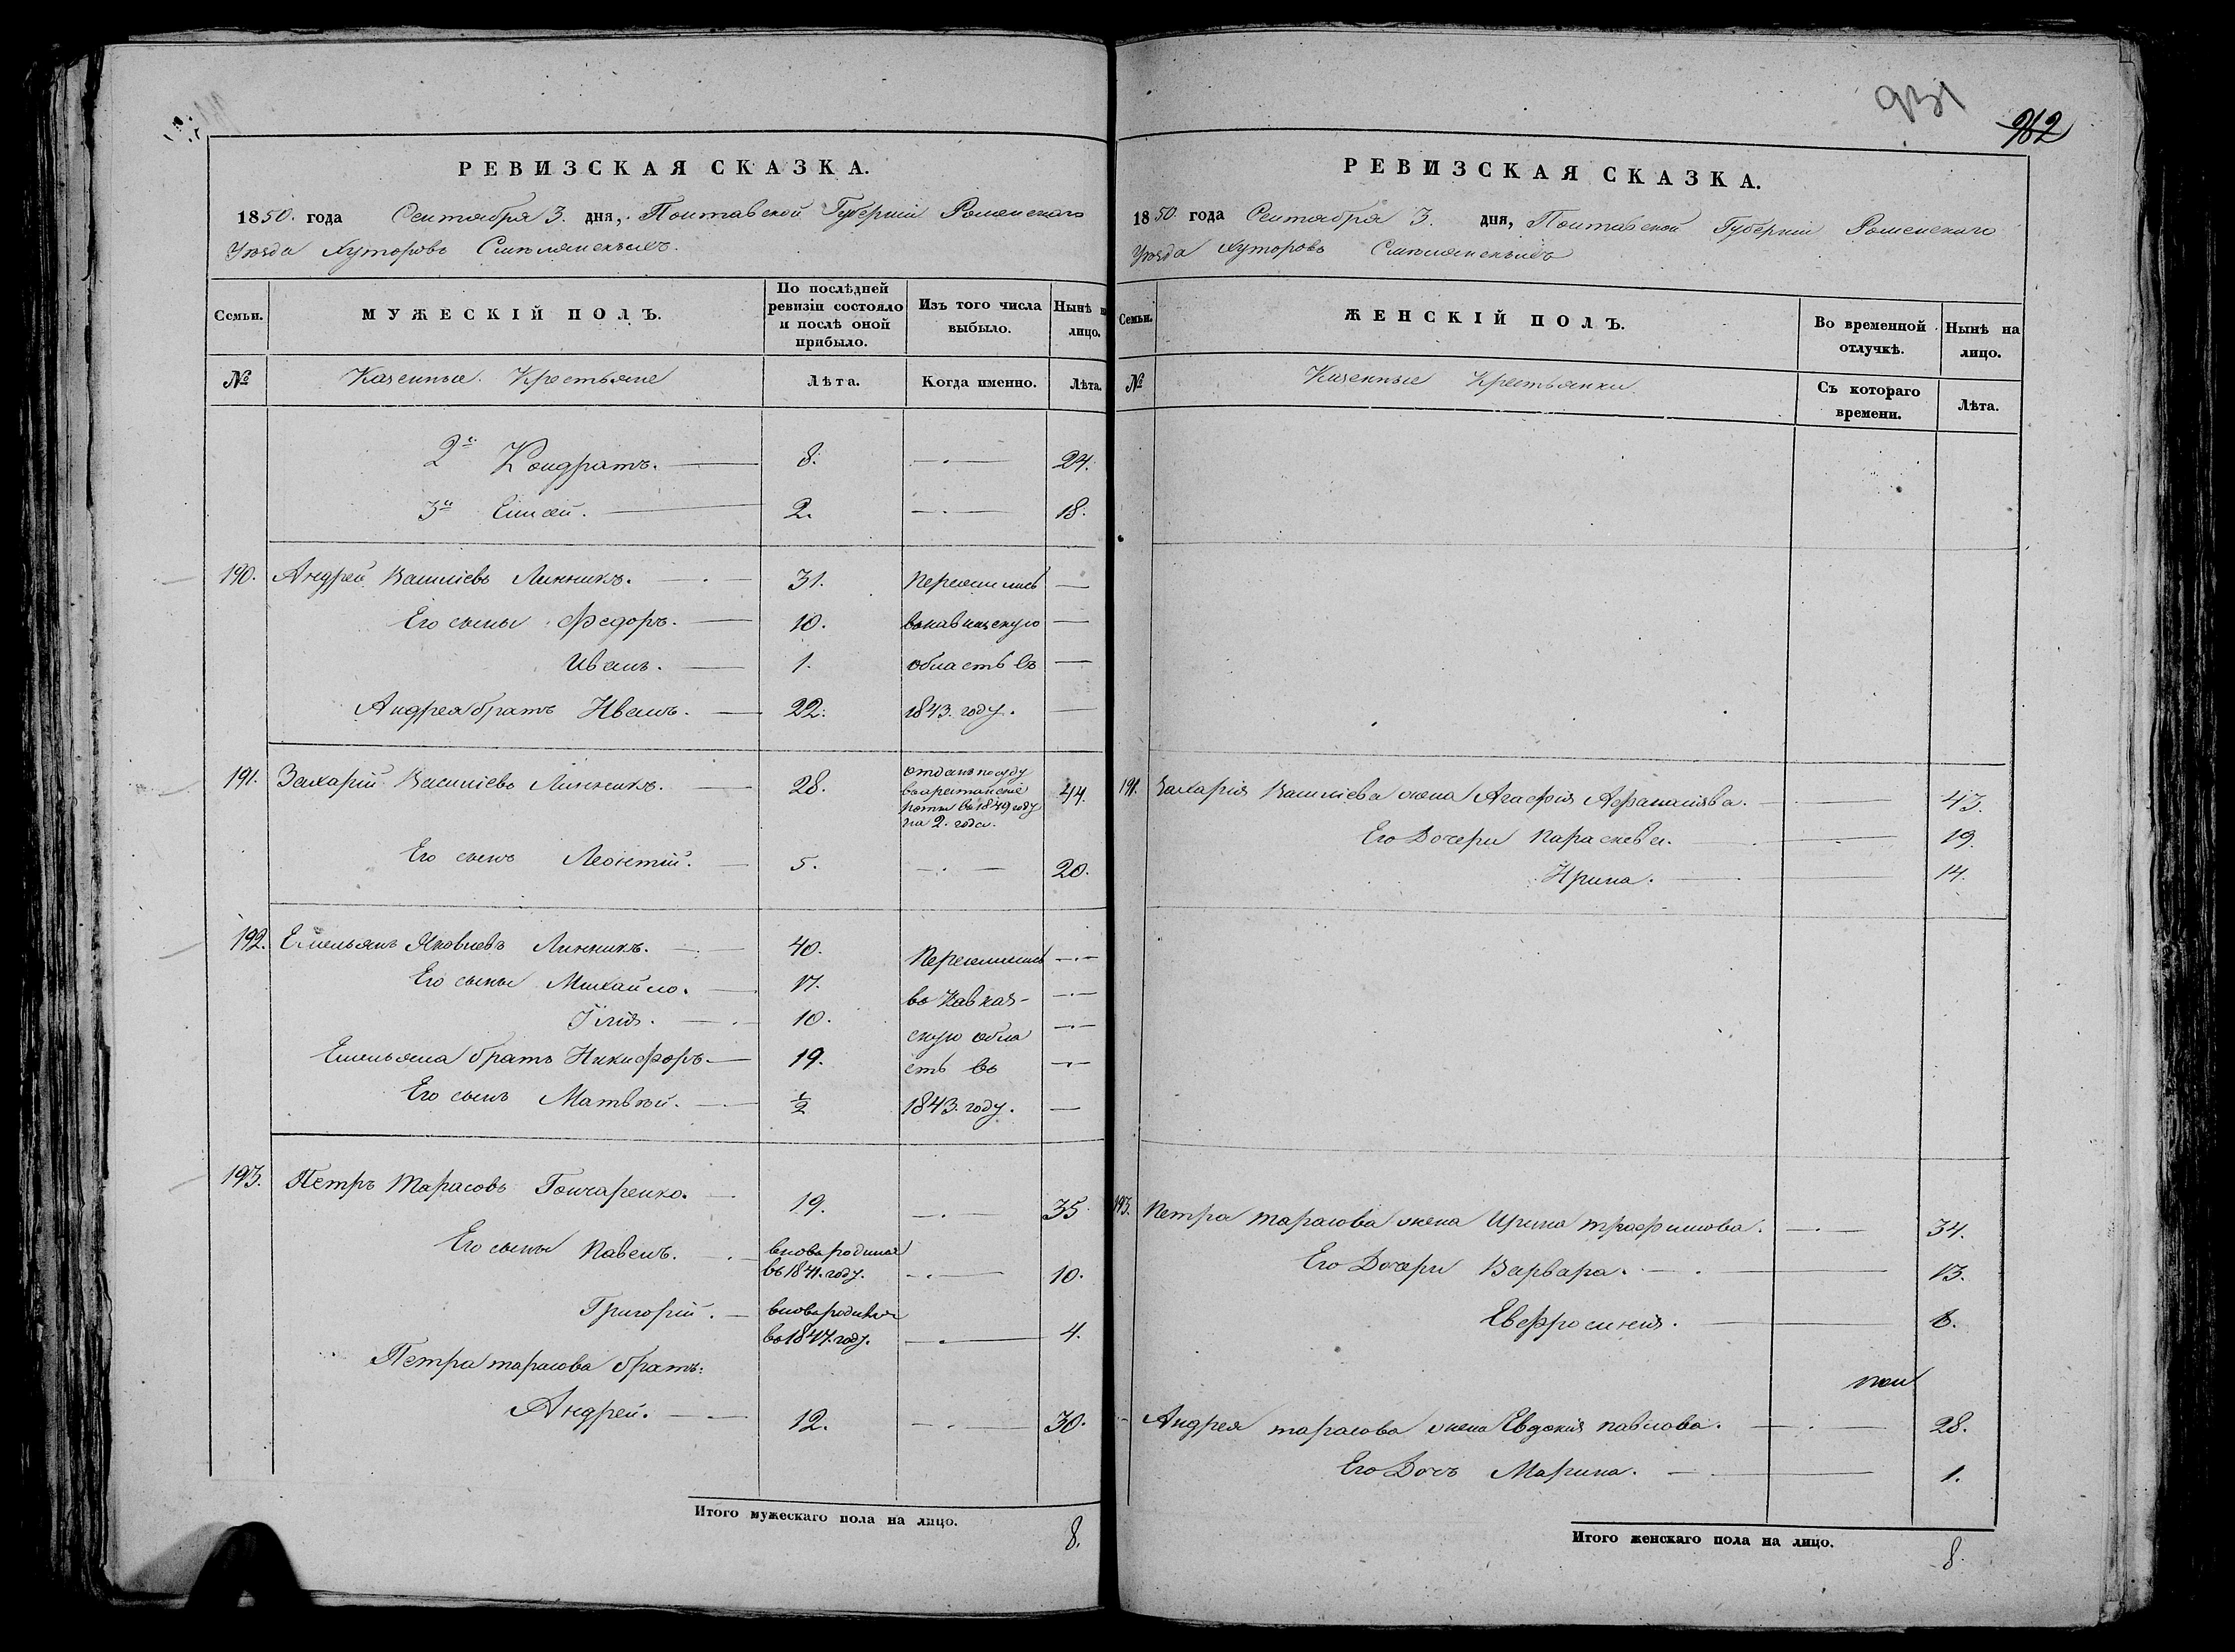 931
962
РЕВИЗСКАЯ СКАЗКА.
1850. года Сентября 3. дня, Полтавской Губерніи Роменскаго
Уѣзда Хуторовъ Смѣлянскихъ.
Семьи.
МУЖЕСКІЙ ПОЛЪ.
По послѣдней ревизіи состояло и послѣ оной прибыло.
Изъ того числа выбыло.
Нынѣ на лицо.
№
Казенные Крестьяне
Лѣта.
Когда именно.
Лѣта.
2й Кондратъ. 8. 24.
3й Елисей. 2. 18.
190. Андрей Василіевъ Линникъ. 31. Переселились
Его сыны Федоръ. 10. въкавказскую
Иванъ. 1. область въ
Андрея братъ Иванъ. 22. 1843. году.
191. Захарій Василіевъ Линникъ. 28. отданъ посуду въарестанскіе роты въ 1849 году на 2. года. 44.
Его сынъ Леонтій. 5. 20.
192. Емельянъ Яковлевъ Линникъ. 40. Переселились
Его сыны Михайло. 17. въ Кавказ-
Ілія. 10. скую обла
Емельяна братъ Никифоръ. 19. сть въ
Его сынъ Матвѣй. 1/2 1843. году.
193. Петръ Тарасовъ Гончаренко. 19. 35
Его сыны Павелъ. вновь родился въ 1841. году. 10.
Григорій. вновь родился въ 1847. году. 4.
Петра тарасова братъ:
Андрей. 12. 30.
Итого мужескаго пола на лицо. 8.
РЕВИЗСКАЯ СКАЗКА.
1850. года Сентября 3. дня, Полтавской Губерніи Роменскаго
Уѣзда Хуторовъ Смѣлянскихъ
Семьи.
ЖЕНСКІЙ ПОЛЪ.
Во временной отлучкѣ.
Нынѣ на лицо.
№
Казенные Крестьянки
Съ котораго времени.
Лѣта.
191. Захарія Василіева жена Агафія Афанасіева. 43.
Его Дочери Параскева. 19.
Ирина. 14.
193. Петра тарасова жена Ирина трофимова. 34.
Его Дочери Варвара. 13.
Евфросинія. 8.
Андрея тарасова жена Евдокія павлова. 28.
Его Дочь Марина. 1.
Итого женскаго пола на лицо. 8.